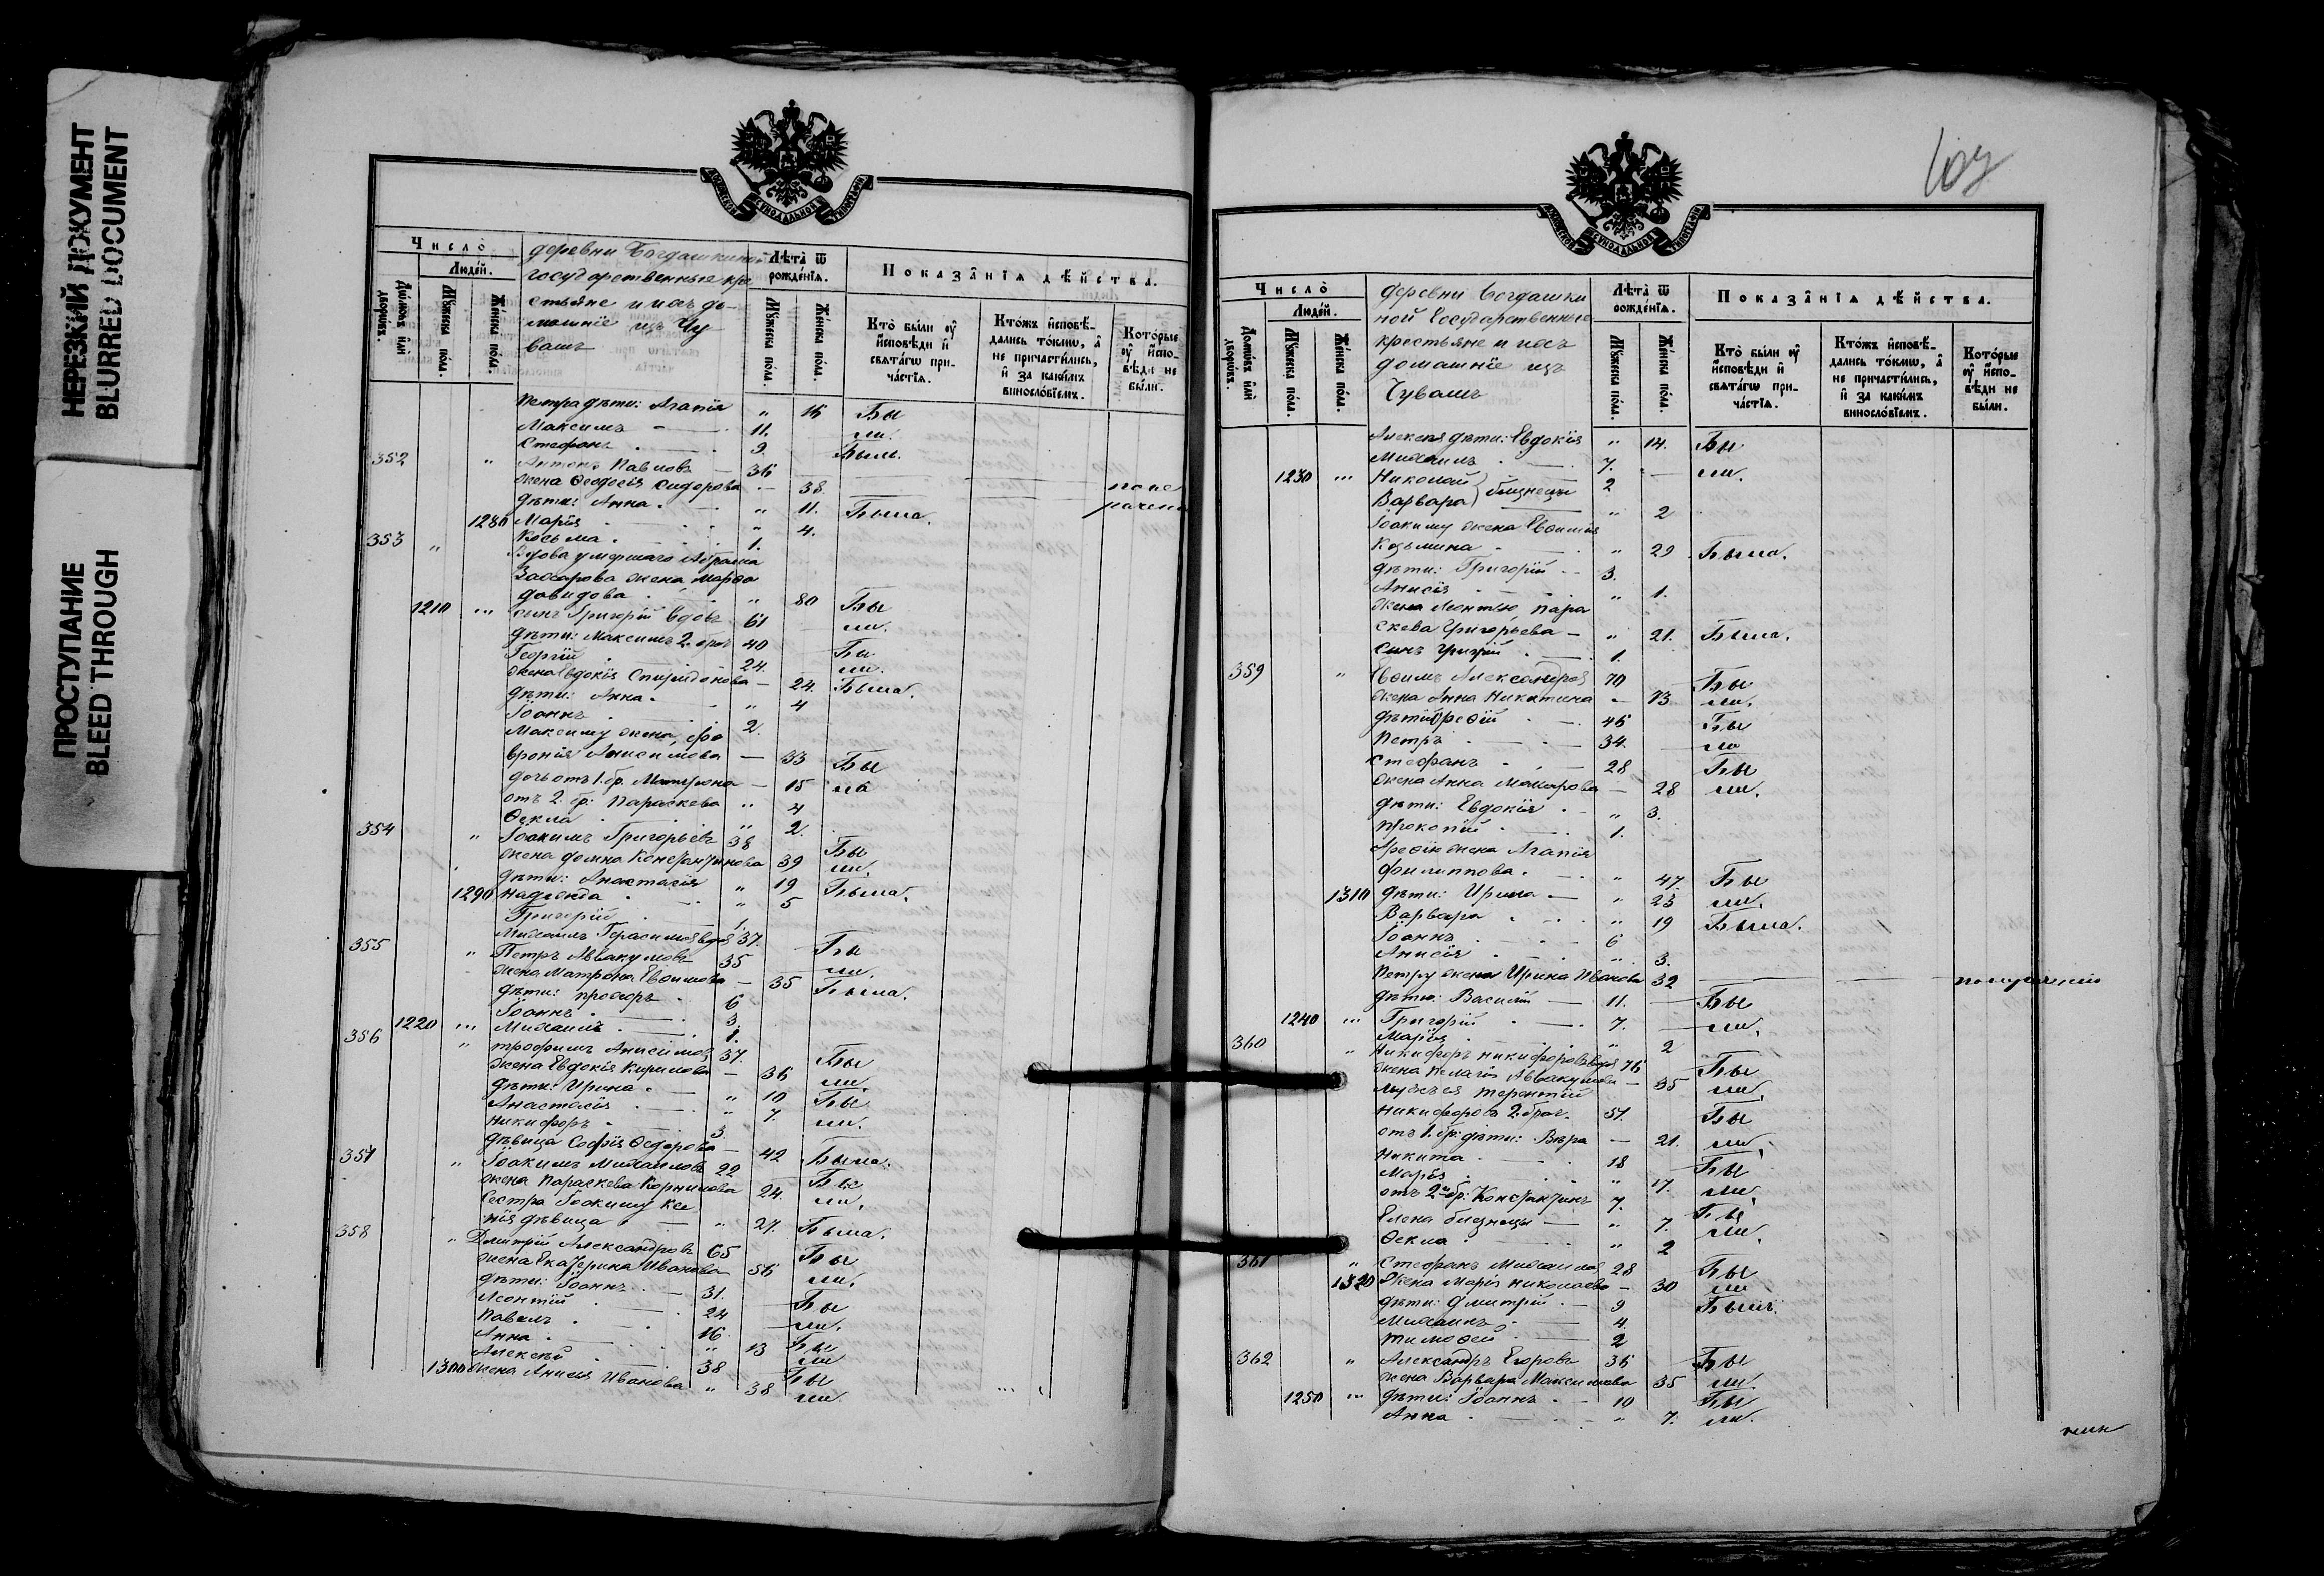 НЕРЕЗКИЙ ДОКУМЕНТ
BLURRED DOCUMENT
ПРОСТУПАНИЕ
BLEED THROUGH
МОСКОВСКОЙ СѴНОДАЛЬНОЙ ТИПОГРАФІИ
Число̀
Людей.
Домовъ и҆лѝ дворовъ.
Мꙋжеска пола.
Женска пола.
деревни Богдашкиной
государственные кре
стьяне и ихъ до-
машніе изъ Чу
вашъ
Лѣта̀ ѿ рожденїѧ.
Мꙋжеска пола.
Женска пола.
Показанїѧ дѣйства.
Кто̀ были оу҆ и҆сповѣди и҆ свѧтагѡ причастїѧ.
Ктожъ и҆сповѣдались токмѡ, а҆ не причастились, и҆ за какимъ винословїемъ.
Которые оу҆ и҆сповѣди не были.
Петра дѣти: Агапія " 16 Бы
Максимъ 11. ли.
Стефанъ 9. Былъ.
352 " Антонъ Павловъ — 36
жена Феодосія Сидорова — 38
дѣти: Анна " 11. Была.
1280 Марія " 4.
Косьма 1.
353 " Вдова умершаго Абрама
Захарова жена Марфа
Давидова " 80 Бы
1210 ... сынъ Григорій вдовъ 61 ли.
дѣти: Максимъ 2. бра 40 Бы
Георгій 24. ли.
жена Евдокія Спиридонова — 24. Была.
дѣти: Анна " 4
Іоаннъ 2.
Максиму жена, Фе
вронія Анисимова — 33 Бы
дочь отъ 1. бр. Матрона — 15 ла
отъ 2. бр: Параскева " 4
Фекла " 2.
354 " Іоакимъ Григорьевъ 38 Бы
жена Домна Константинова 39 ли.
дѣти: Анастасія " 19 Была.
1290 Надежда " 5
Григорій 1.
Михаилъ Герасимовъ вдов 37. Бы
355 " Петръ Аввакумовъ 35 ли.
жена Матрона Евфимова — 35 Была.
дѣти: Прохоръ 6
Іоаннъ 3.
1220 ... Михаилъ 1.
356 " Трофимъ Анисимовъ 37. Бы
жена Евдокія Кирилова — 36 ли.
дѣти: Ирина " 10 Бы
Анастасія " 7. ли.
Никифоръ 3.
дѣвица Софія Федорова — 42 Была.
357 " Іоакимъ Михаиловъ 22 Бы
жена Параскева Корнилова 24. ли.
сестра Іоакиму Ксе
нія дѣвица " 27. Была.
358 " Дмитрій Александровъ 65 Бы
жена Екатерина Иванова 56 ли.
дѣти: Іоаннъ 31. Бы
Леонтій 24 ли.
Павелъ 16 Бы
Анна " 13 ли
Алексѣй 38 Бы
1300 жена Анисія Иванова " 38 ли.
МОСКОВСКОЙ СѴНОДАЛЬНОЙ ТИПОГРАФІИ
Число̀
Людей.
Домовъ и҆лѝ дворовъ.
Мꙋжеска пола.
Женска пола.
деревни Богдашки
ной Государственные
крестьяне и ихъ
домашніе изъ
Чувашъ
Лѣта̀ ѿ рожденїѧ.
Мꙋжеска пола.
Женска пола.
Показанїѧ дѣйства.
Кто̀ были оу҆ и҆сповѣди и҆ свѧтагѡ причастїѧ.
Ктожъ и҆сповѣдались токмѡ, а҆ не причастились, и҆ за какимъ винословїемъ.
Которые оу҆ и҆сповѣди не были.
Алексѣя дѣти: Евдокія " 14. Бы
Михаилъ 7. ли.
1230 ... Николай } близнецы 2
Варвара " 2
Іоакиму жена Евфимія
Козьмина " 29 Была.
дѣти: Григорій 3.
Анисія " 1.
жена Леонтію Пара
скева Григорьева — " 21. Была.
сынъ Григорій 1.
359 " Евфимъ Александровъ 70 Бы
жена Анна Никитина — 73 ли.
дѣти: Арефій 46 Бы
Петръ 34. ли
Стефанъ 28 Бы
жена Анна Макарова — 28 ли.
дѣти: Евдокія " 3.
Прокопій 1.
Арефію жена Агапія
Филиппова " 47. Бы
1310 дѣти: Ирина " 23 ли.
Варвара " 19 Была.
Іоаннъ 6
Анисія " 3.
Петру жена Ирина Иванова 32
дѣти: Василій — 11. Бы
1240 ... Григорій 7. ли.
Марія " 2
360 " Никифоръ Никифоровъ вдов 76 Бы
жена Пелагія Аввакумова — 35 ли.
мужъ ея Терентій
Никифоровъ 2. брак. 37. Бы
отъ 1. бр: дѣти: Вѣра — 21. ли.
Никита 18 Бы
Марія " 17. ли.
отъ 2го бр: Константинъ 7. Бы
Елена близнецы — " 7. ли.
Фекла " 2
361 " Стефанъ Михаиловъ 28 Бы
1320 жена Марія Николаева — 30 ли
дѣти: Дмитрій — 9 Былъ.
Михаилъ 4.
Тимофей 2
362 " Александръ Егоровъ 36 Бы
жена Варвара Максимова 35 ли.
1250 ... дѣти: Іоаннъ — 10 Бы
Анна " 7. ли.